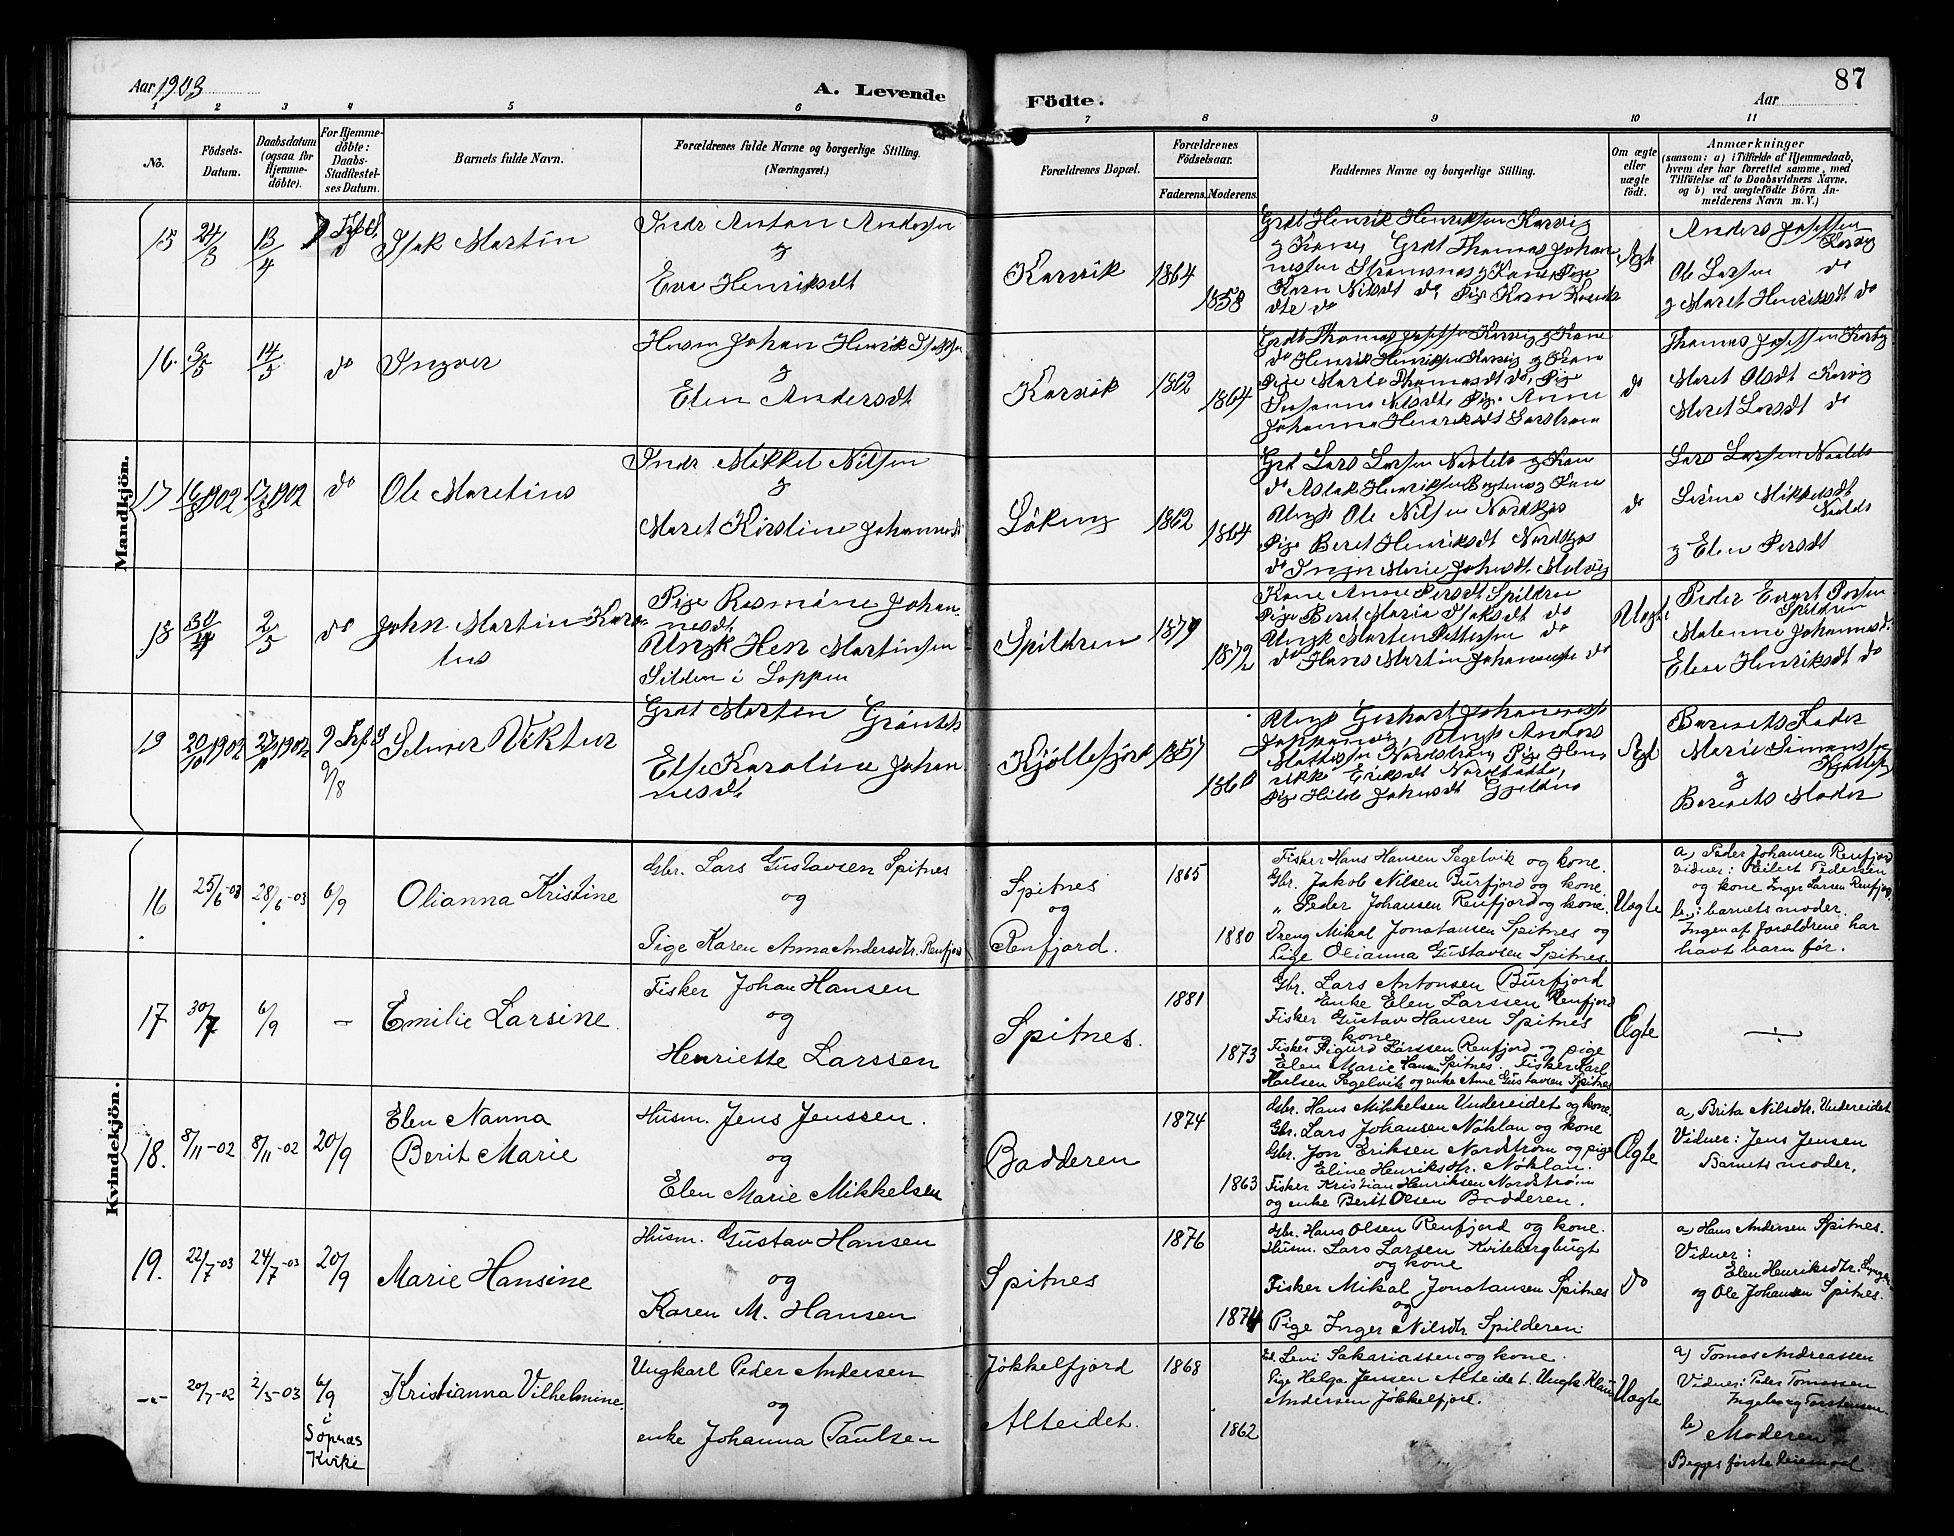 Aar 1903
A. Levende
Födte.
Aar
87
1
2
3
4
5
6
7
8
9
10
11
No.
Födsels-
Datum.
Daabsdatum
(ogsaa for
Hjemme-
döbte).
For Hjemme-
döbte:
Daabs-
Stadfæstel-
ses Datum.
Barnets fulde Navn.
Forældrenes fulde Navne og borgerlige Stilling.
(Næringsvei.)
Forældrenes Bopæl.
Forældrenes
Födselsaar.
Faderens.
Moderens.
Faddernes Navne og borgerlige Stilling.
Om ægte
eller
uægte
födt.
Anmærkninger
(saasom: a) i Tilfælde af Hjemmedaab,
hvem der har forrettet samme, med
Tilföielse af to Daabsvidners Navne,
og b) ved uægtefödte Börn An-
melderens Navn m. V.)
Mandkjön.
15
24/3
13/4
Isak Martin
Indr Anton Andersen
g
Eva Henriksdt
Korvik
1864
1858
Grdt Henrik Henriksen Korvig
g Kone, Grdt Thomas Johan
nessen Stramsnes g Kone, Pige
Karn Nilsdt do, Pige Karn
dte do
Ægt
Anders Josefsen
Korvig
Ole Larsen do
g Maret Henriksdt do
16.
3/5
14/5
do
Ingver
Husm Johan Henrik
g
Elen Andersdt
Korvik
1862
1864
Grdt Thomas Josefsen Korvig g Kone
do Henrik Henriksen Korvig g Kone
Pige Marie Thomasdt do, Pige
Susanna Nilsdt, Pige Anne
Johanna Henriksdt
do
Thomas Josefsen Korvig
Maret Olsdt Korvig
Maret Larsdt do
17
1902
1902
do
Ole Maretius
Indr Mikkel Nilsen
g
Maret Kirstine Johannesdt
1862
1864
Grdt Lars Larsen g Kone
do Aslak Henriksen g Kone
Ungk Ole Nilsen
Pige Beret Henriksdt
do Inger Marie Johansdt
do
Lars Larsen
Mikkelsdt
g Elen Persdt
18
30/4
2/5
do
John Martin Kors
tus
Pige Rasmine Johan-
nesdt
Ungk Hen Martinsen
Silden i Loppen
Spildren
1879
1872
Kone Anne Persdt Spildren
Pige Beret Maria Isaksdt do
Ungk Morten Pettersen do
do Hans Martin do
Uægt
Peder Evert
Spildren
Malenne Johannesdt
Elen Henriksdt do
19
20/10 1902
1902
9/8
Selmer Viktur
Grdt Morten
Else Karoline Johan
nesdt
Kjøllefjord
1857
Ungk Gerhart
Ungk Anders
Mattissen Nordstrøm, Pige Hen
rikke Eriksdt
Pige Hilda Johansdt
Ægt
Barnets Fader
Marie
g
Barnets Moder
Kvindekjön.
16
25/6-03
28/6-03
6/9
Olianna Kristine
Gbr. Lars Gustavsen Spitnes
og
Pige Karen Anna Andersdtr. Renfjord
Spitnes
og
Renfjord.
1865
1880
Fisker Hans Hansen Segelvik og kone.
Gbr. Jakob Nilsen Burfjord og kone.
„ Peder Johansen Renfjord og kone.
Dreng Mikal Jonatansen Spitnes og
Pige Olianna Gustavsen Spitnes.
Uægte
a, Peder Johansen Renfjord
Vidner: Peilert Pedersen
og kone Inger Larsen Renfjord
b,: barnets moder.
Ingen af forældrene har
havt barn før.
17
30/7
6/9
—
Emilie Larsine.
Fisker Johan Hansen
og
Henriette Larssen
Spitnes.
1881
1873
Gbr. Lars Antonsen Burfjord
Enke Elen Larssen Renfjord
Fisker Gustav Hansen Spitnes
og kone
Fisker Sigurd Larssen Renfjord og pige
Elen Marie Hansen Spitnes. Fisker Karl
Karlsen Segelvik og enke Ane Gustavsen Spitnes
Ægte
18.
8/11-02
8/11-02
20/9
Elen Nanna
Berit Marie
Husm. Jens Jenssen.
og
Elen Marie Mikkelsen
Badderen
1874
1863
Gbr. Hans Mikkelsen Undereidet og kone.
Gbr. Lars Johansen Nöklan og kone
Gbr. Jon Eriksen Nordstrøm og pige
Eline Henriksdtr. Nöklan.
Fisker Kristian Henriksen Nordstrøm
og enke Berit Olsen Badderen.
Ægte
a, Brita Nilsdtr. Undereidet
Vidner: Jens Jensen
Barnets moder.
19.
22/7-03
24/7-03
20/9
Marie Hansine
Husm. Gustav Hansen
og
Karen M. Hansen
Spitnes
1876
1874
Gbr. Hans Olsen Renfjord og kone.
Husm. Lars Larsen Kvitebergbugt
og kone
Fisker Mikal Jonatansen Spitnes
og
Pige Inger Nilsdtr Spilderen.
do
a, Hans Andersen Spitnes.
Vidner:
Elen Henriksdtr.
og Ole Johansen Spitnes.
-.-
20/7-02
2/5-03
6/9
i
Sopnæs
Kvike
Kristianna Vilhelmine.
Ungkarl Peder Andersen
og
enke Johanna Paulsen
Jøkkelfjord
Alteidet.
1868
1862
Levi Sakariassen og kone.
Pige Helga Jensen Alteidet. Ungk. Klaus
Andersen Jøkkelfjord.
Uægte
a) Tomas Andreassen
Vidner: Peder Tomassen
Ingeborg Torstensen.
b) Moderen.
Begges første leiermaal.